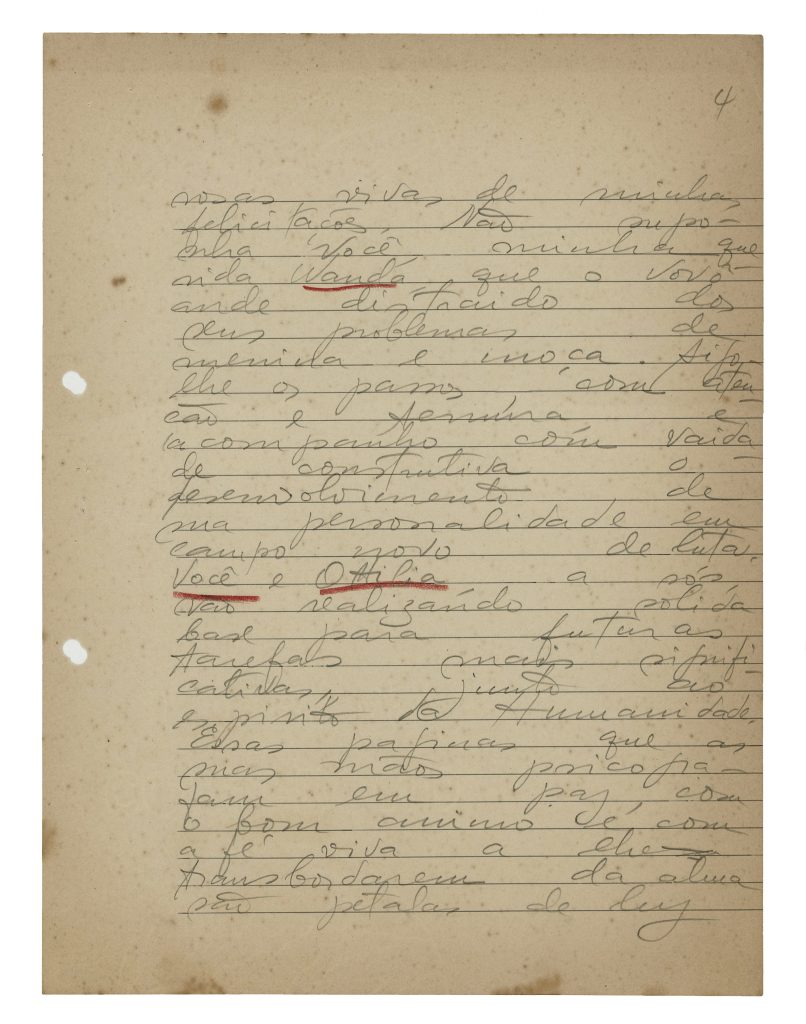 4
rosas vivas de minhas
felicitações. Não supo-
nha Você, minha que-
rida Wanda, que o Vovô
ande distraido dos
seus problemas de
menina e moça. Sigo-
lhe os passos com aten-
ção e ternura e
acompanho com vaida-
de construtiva o
desenvolvimento de
sua personalidade em
campo novo de luta.
Você e Otilia, a sós,
vão realizando solida
base para futuras
tarefas mais signifi-
cativas, junto ao
espirito da Humanidade.
Essas paginas que as
suas mãos psicogra-
fam em paz, com
o bom animo e com
a fé viva a lhe
transbordarem da alma
são petalas de luz